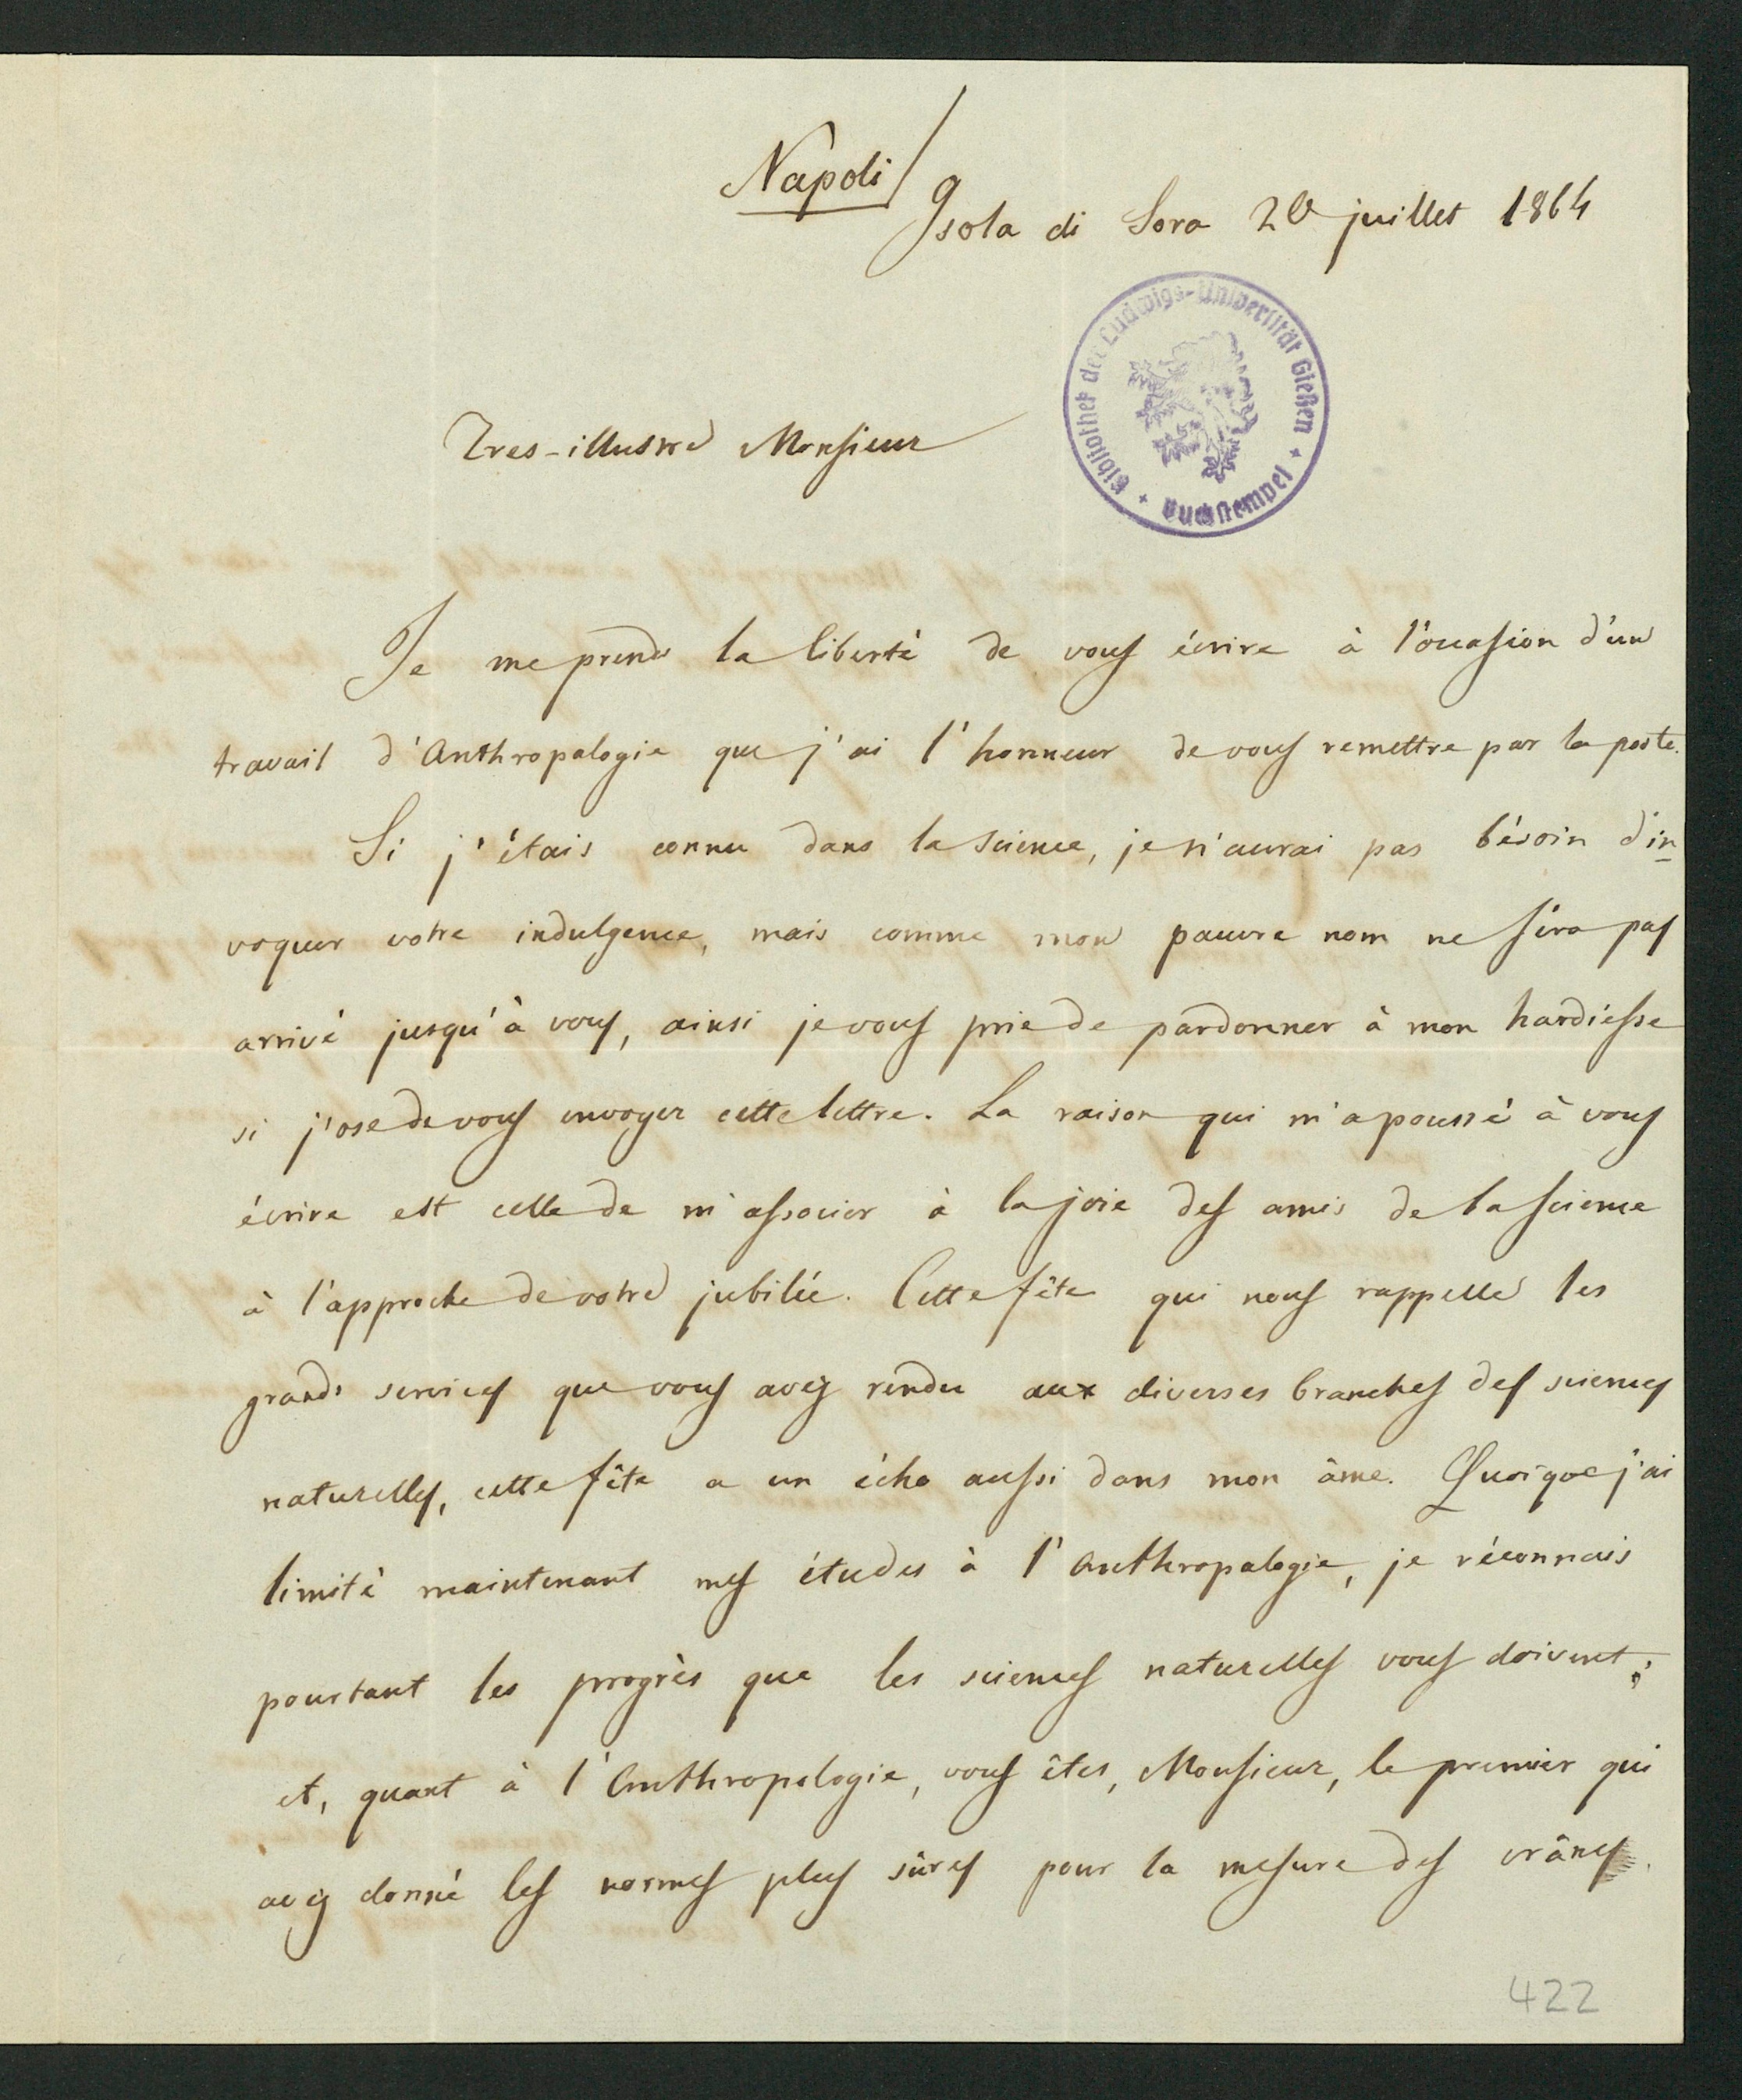 Napoli/
Isola di Sora 20 juillet 1864
Bibliothek der Ludwigs-Universität Gießen + Buchstempel +
Tres-illustre Monsieur
Je me prends la liberté de vous écrire à l'occasion d'un
travail d'Anthropologie que j'ai l'honneur de vous remettre par la poste.
Si j'étais connu dans la science, je n'aurai pas bésoin d'in
voquer votre indulgence, mais comme mon pauvre nom ne séra pas
arrivé jusqu'à vous, ainsi je vous prie de pardonner à mon hardiesse
si j'ose de vous envoyer cette lettre. La raison qui m'a poussé à vous
écrire est celle de m'associer à la joie des amis de la science
à l'approche de votre jubilée. Cette fête qui nous rappelle les
grands services que vous avez rendu aux diverses branches des sciences
naturelles, cette fête a un écho aussi dans mon âme. Quoique j'ai
limité maintenant mes études à l'Anthropologie, je réconnais
pourtant les progrès que les sciences naturelles vous doivent;
et, quant à l'Anthropologie, vous êtes, Monsieur, le premier qui
avez donné les normes plus sûres pour la mesure des crânes.
422